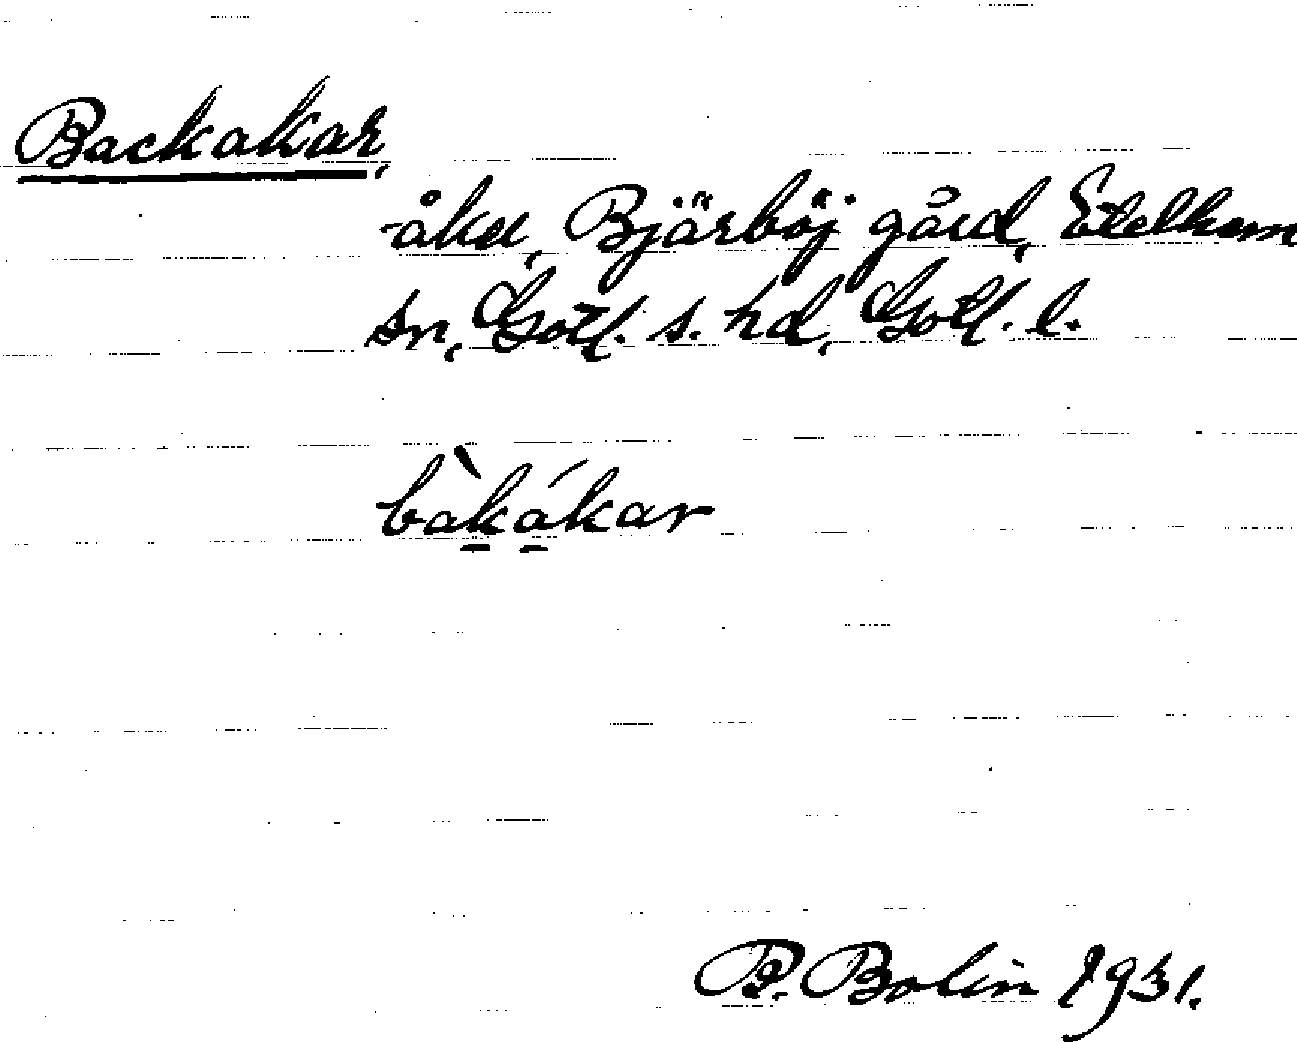 Backakar,
åker, Bjärböj gård, Etelhem
sn, Gotl. s. hd, Gotl. l.
bàkákar
B. Bolin 1931.